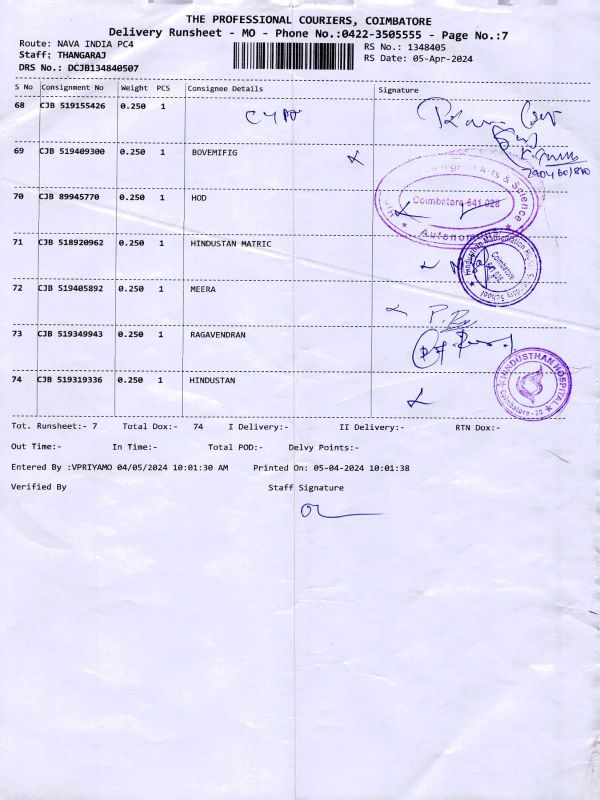 THE PROFESSIONAL COURIERS, COIMBATORE
Delivery Runsheet - MO - Phone No.:0422-3505555 - Page No.:7
Route: NAVA INDIA PC4
RS No.: 1348405
Staff: THANGARAJ
RS Date: 05-Apr-2024
DRS No.: DCJB134840507
S No Consignment No Weight PCS Consignee Details Signature
68 CJB 519155426 0.250 1
69 CJB 519409300 0.250 1 BOVEMIFIG
70 CJB 89945770 0.250 1 HOD
Arts & Science
Coimbatore 641 028
71 CJB 518920962 0.250 1 HINDUSTAN MATRIC
Coimbatore
72 CJB 519405892 0.250 1 MEERA
73 CJB 519349943 0.250 1 RAGAVENDRAN
74 CJB 519319336 0.250 1 HINDUSTAN
HINDUSTHAN HOSPITAL
Coimbatore - 28
Tot. Runsheet:- 7 Total Dox:- 74 I Delivery:- II Delivery:- RTN Dox:-
Out Time:- In Time:- Total POD:- Delvy Points:-
Entered By :VPRIYAMO 04/05/2024 10:01:30 AM Printed On: 05-04-2024 10:01:38
Verified By Staff Signature